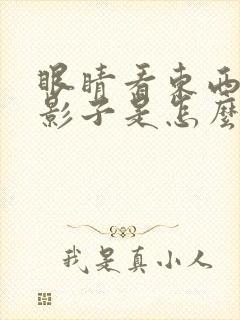 眼睛看東西
影子是怎麼
我是真小人